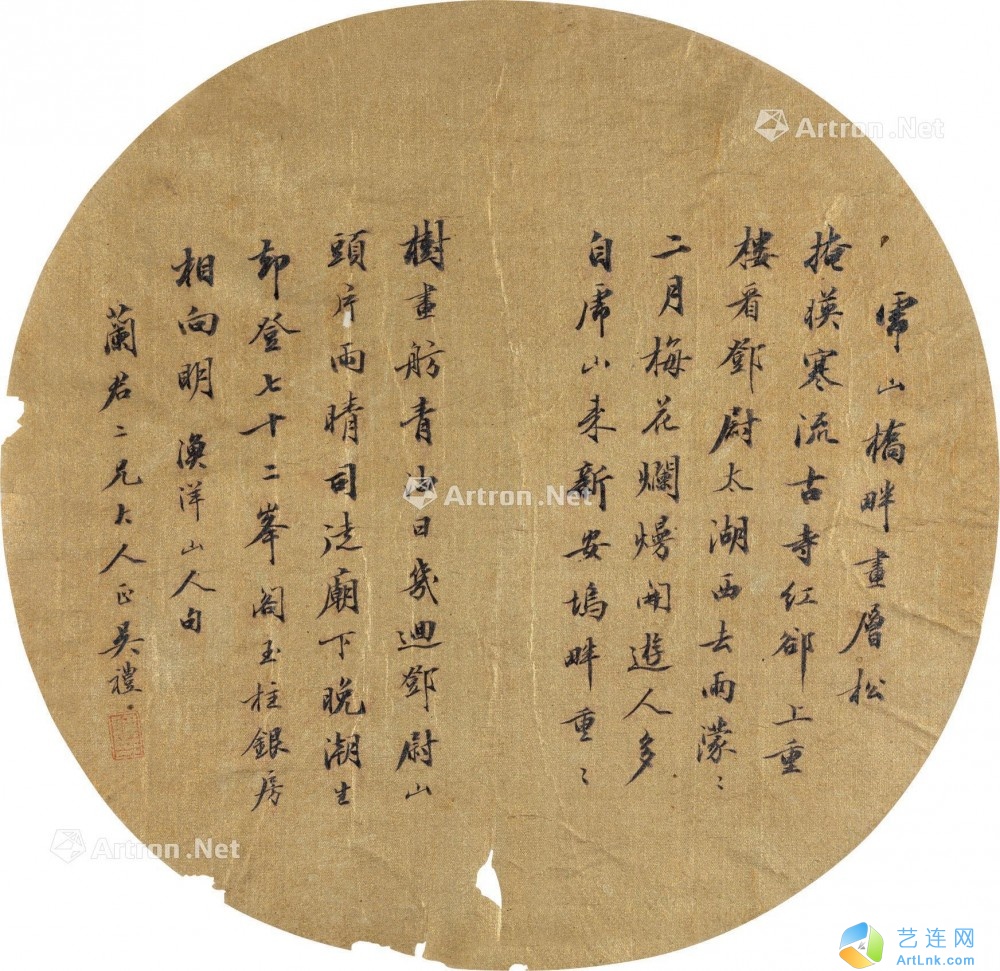 虎山橋畔畫層松
掩暎寒流古寺紅郤上重
樓看鄧尉太湖西去雨濛〻
二月梅花爛熳開遊人多
自虎山来新安塢畔重〻
樹畫舫青油日幾迴鄧尉山
頭片雨晴司徒廟下晚潮生
却登七十二峯閣玉柱銀房
相向明 漁洋山人句
蘭君二兄大人正吳禮
Artron.Net
Artron.Net
Artron.Net
Artron.Net
艺连网
ArtLnk.com